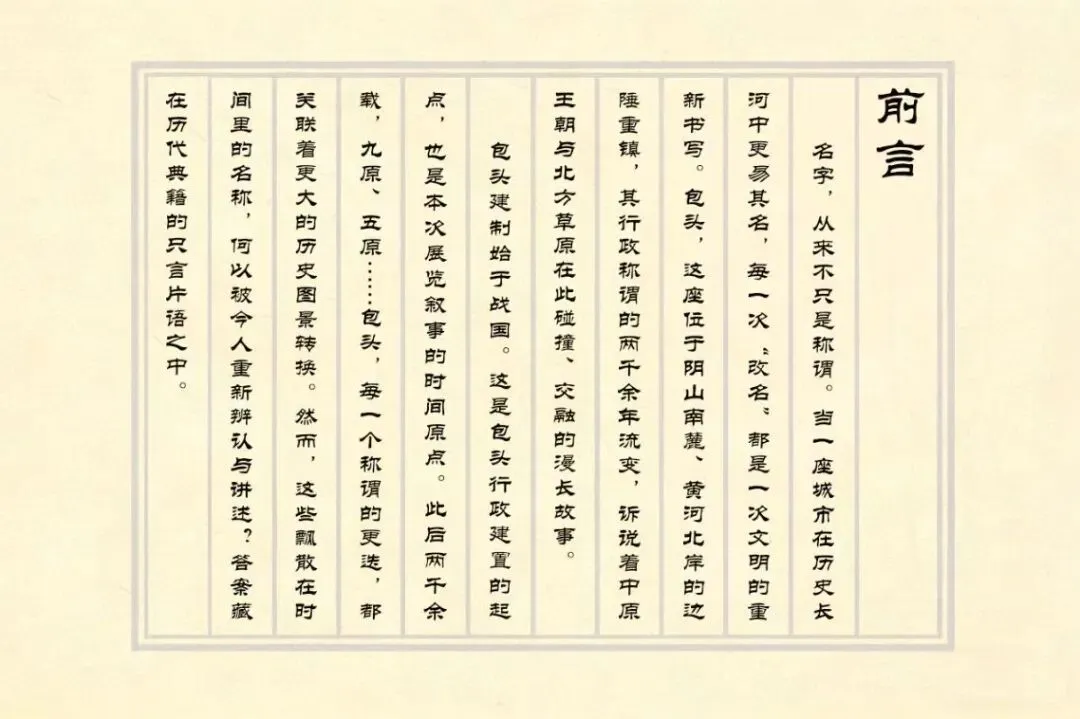 前言
名字，从来不只是称谓。当一座城市在历史长
河中更易其名，每一次“改名”都是一次文明的重
新书写。包头，这座位于阴山南麓、黄河北岸的边
陲重镇，其行政称谓的两千余年流变，诉说着中原
王朝与北方草原在此碰撞、交融的漫长故事。
包头建制始于战国。这是包头行政建置的起
点，也是本次展览叙事的时间原点。此后两千余
载，九原、五原……包头，每一个称谓的更迭，都
关联着更大的历史图景转换。然而，这些飘散在时
间里的名称，何以被今人重新辨认与讲述？答案藏
在历代典籍的只言片语之中。